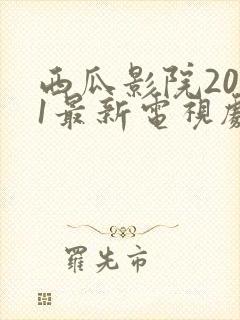 西瓜影院20
1最新電視劇
羅先市